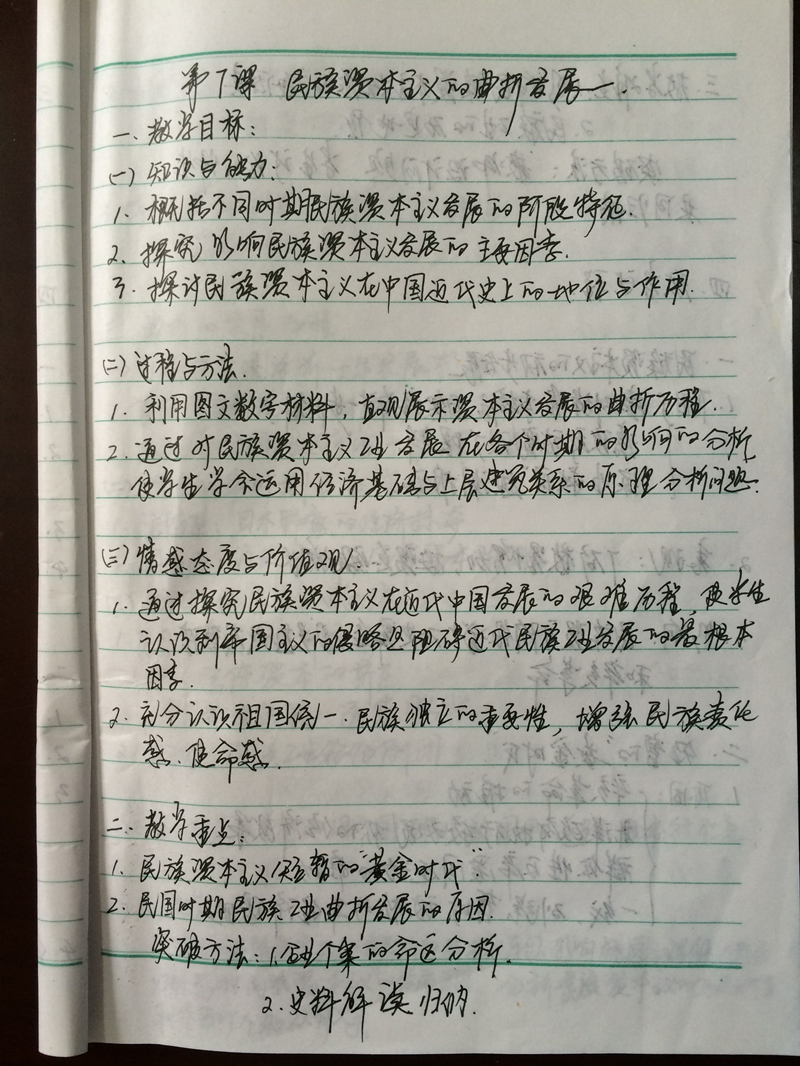 第7课 民族资本主义的曲折发展
一、教学目标：
(一) 知识与能力：
1、概括不同时期民族资本主义发展的阶段特征.
2、探究影响民族资本主义发展的主要因素.
3、探讨民族资本主义在中国近代史上的地位与作用.
(二) 过程与方法.
1、利用图文数字材料，直观展示资本主义发展的曲折历程.
2、通过对民族资本主义工业发展在各个时期的影响的分析
使学生学会运用经济基础与上层建筑关系的原理分析问题.
(三) 情感态度与价值观.
1、通过探究民族资本主义在近代中国发展的艰难历程，使学生
认识到帝国主义的侵略是阻碍近代民族工业发展的最根本
因素.
2、充分认识祖国统一、民族独立的重要性，增强民族责任
感、使命感.
二、教学重点：
1、民族资本主义短暂的“黄金时代”
2、民国时期民族工业曲折发展的原因.
突破方法：1.企业个案的命运分析.
2.史料解读归纳.